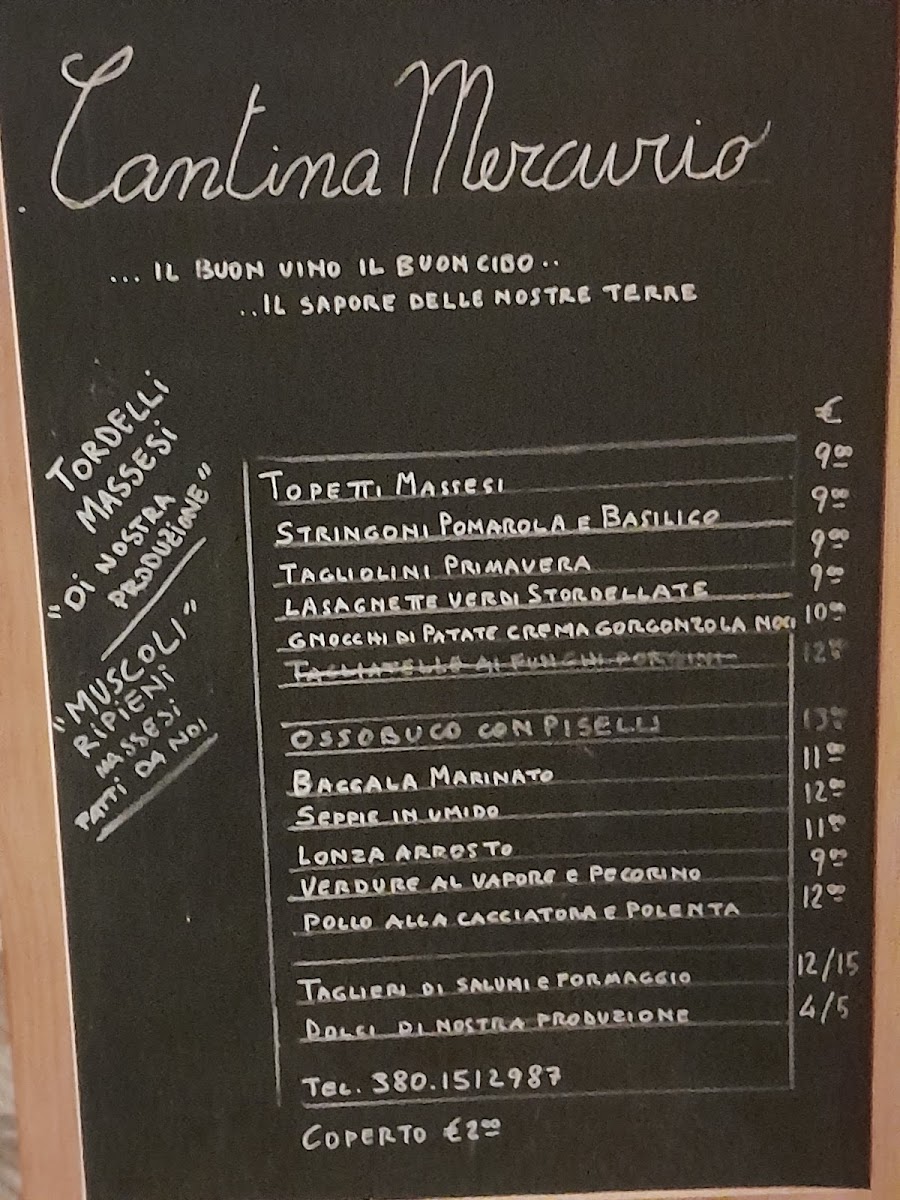 Cantina Mercurio
... IL BUON VINO IL BUON CIBO..
..IL SAPORE DELLE NOSTRE TERRE
TORDELLI
MASSESI
"DI NOSTRA
PRODUZIONE"
"MUSCOLI"
RIPIENI
MASSESI
FATTI DA NOI
€
TOPETTI MASSESI 9.00
STRINGONI POMAROLA E BASILICO 9.00
TAGLIOLINI PRIMAVERA 9.00
LASAGNETTE VERDI STORDELLATE 9.00
GNOCCHI DI PATATE CREMA GORGONZOLA NOCI 10.00
TAGLIATELLE AI FUNGHI PORCINI 12.00
OSSOBUCO CON PISELLI 13.00
BACCALA MARINATO 11.00
SEPPIE IN UMIDO 12.00
LONZA ARROSTO 11.00
VERDURE AL VAPORE E PECORINO 9.00
POLLO ALLA CACCIATORA E POLENTA 12.00
TAGLIERI DI SALUMI E FORMAGGIO 12/15
DOLCI DI NOSTRA PRODUZIONE 4/5
TEL. 380.1512987
COPERTO €2.00